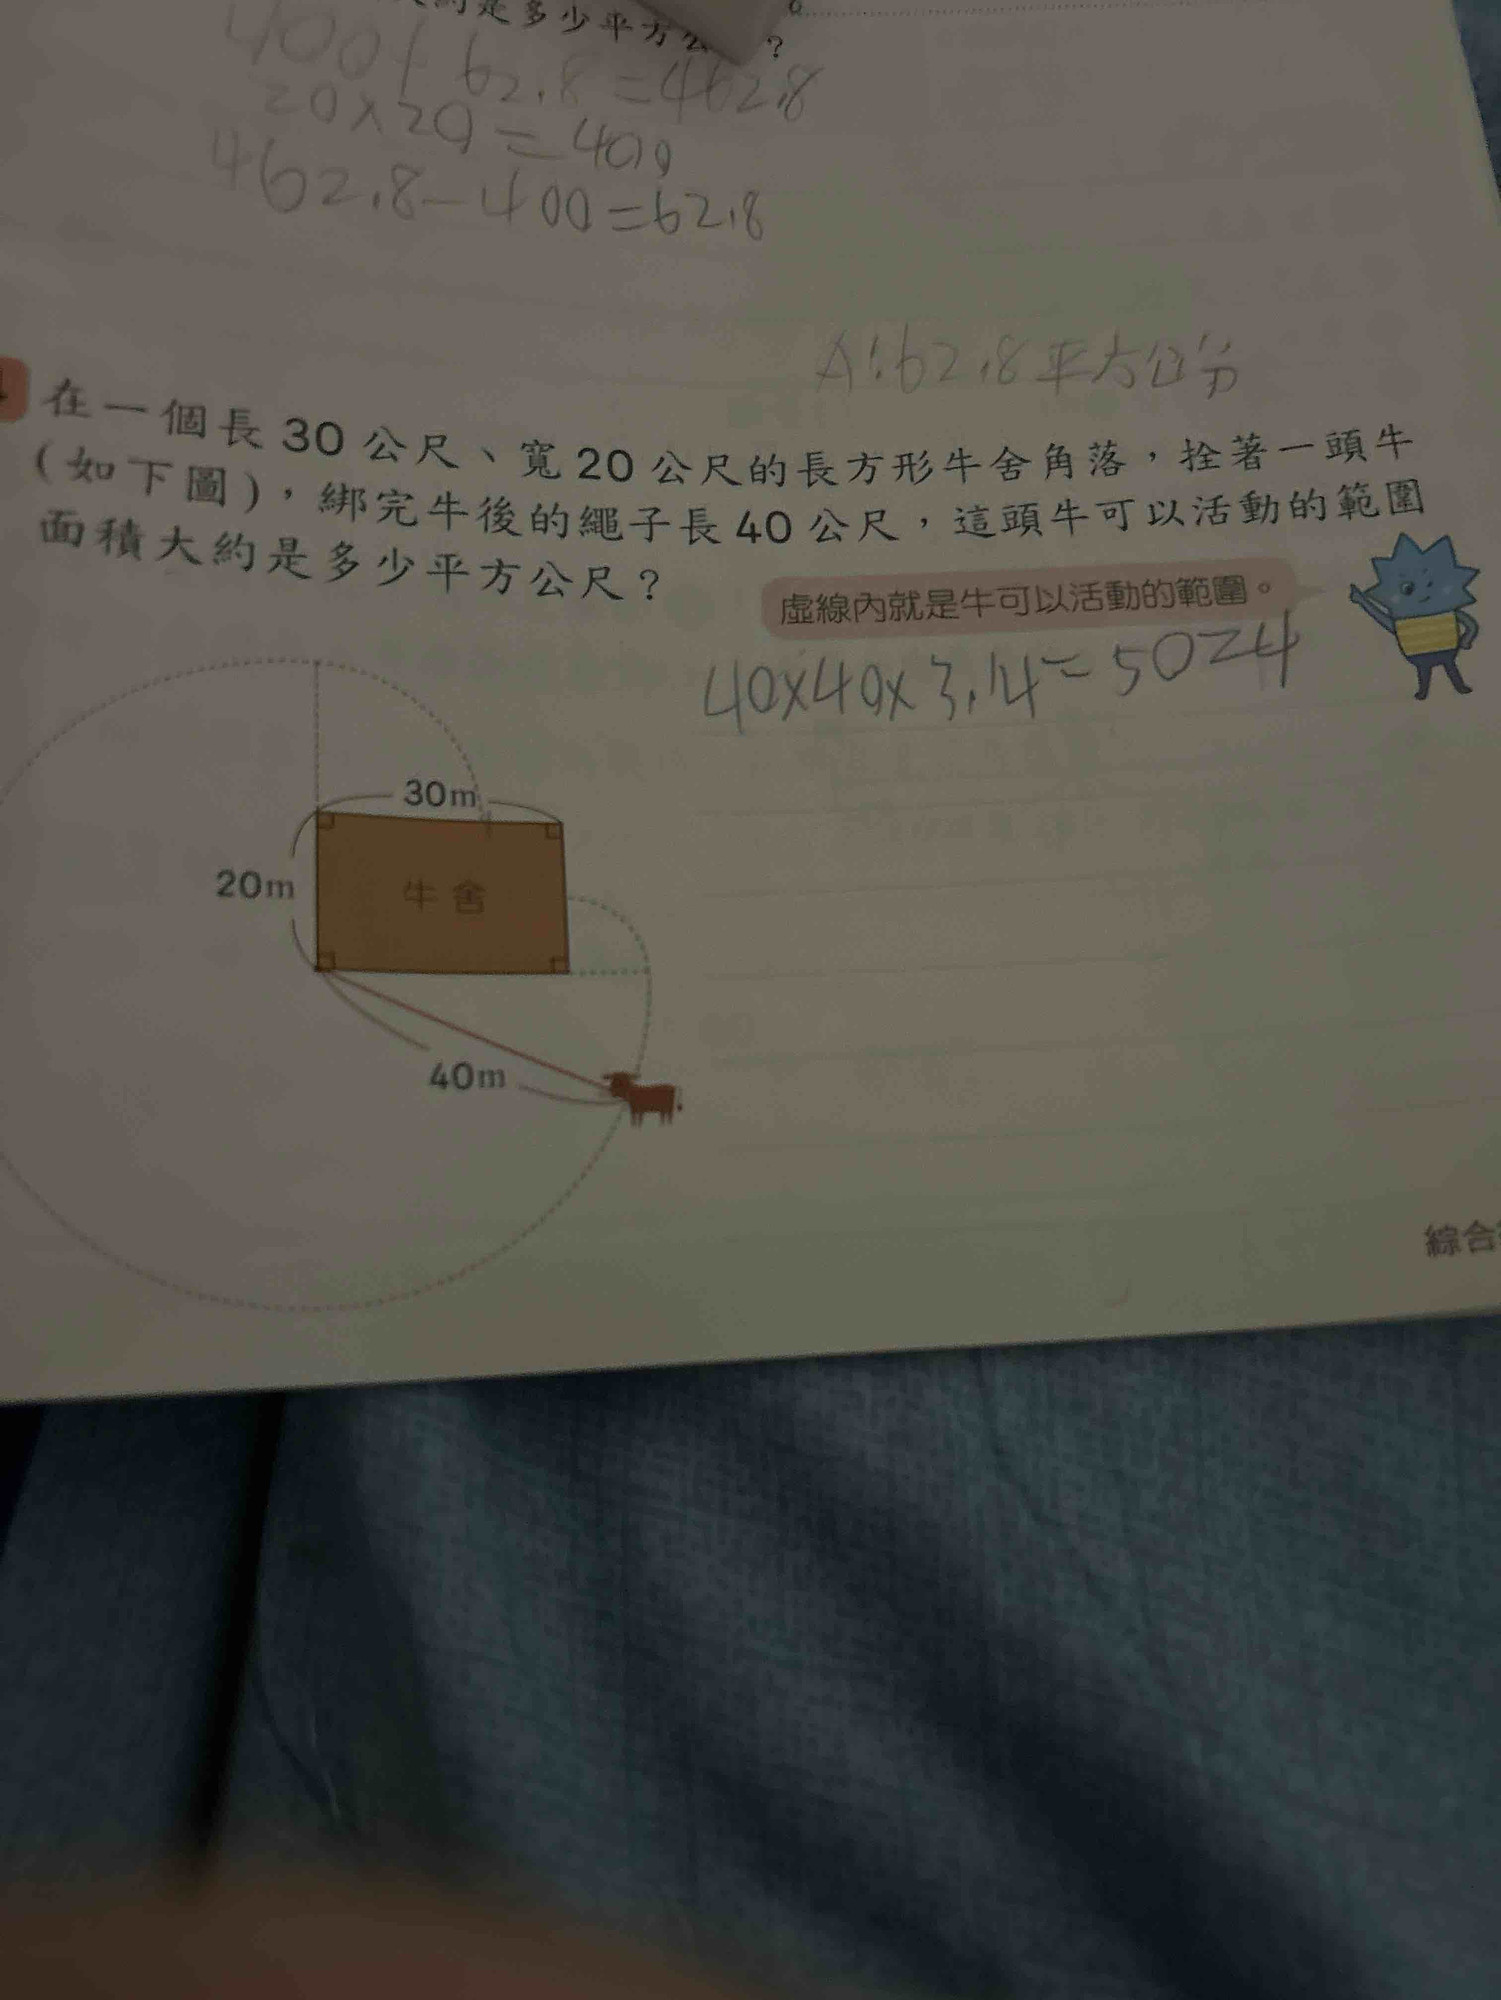 約是多少平方公 ?
400+62.8=462.8
20×20=400
462.8-400=62.8
A:62.8平方公分
在一個長30公尺、寬20公尺的長方形牛舍角落，拴著一頭牛
(如下圖)，綁完牛後的繩子長40公尺，這頭牛可以活動的範圍
面積大約是多少平方公尺？
虛線內就是牛可以活動的範圍。
40×40×3.14=5024
30m
20m
牛舍
40m
綜合